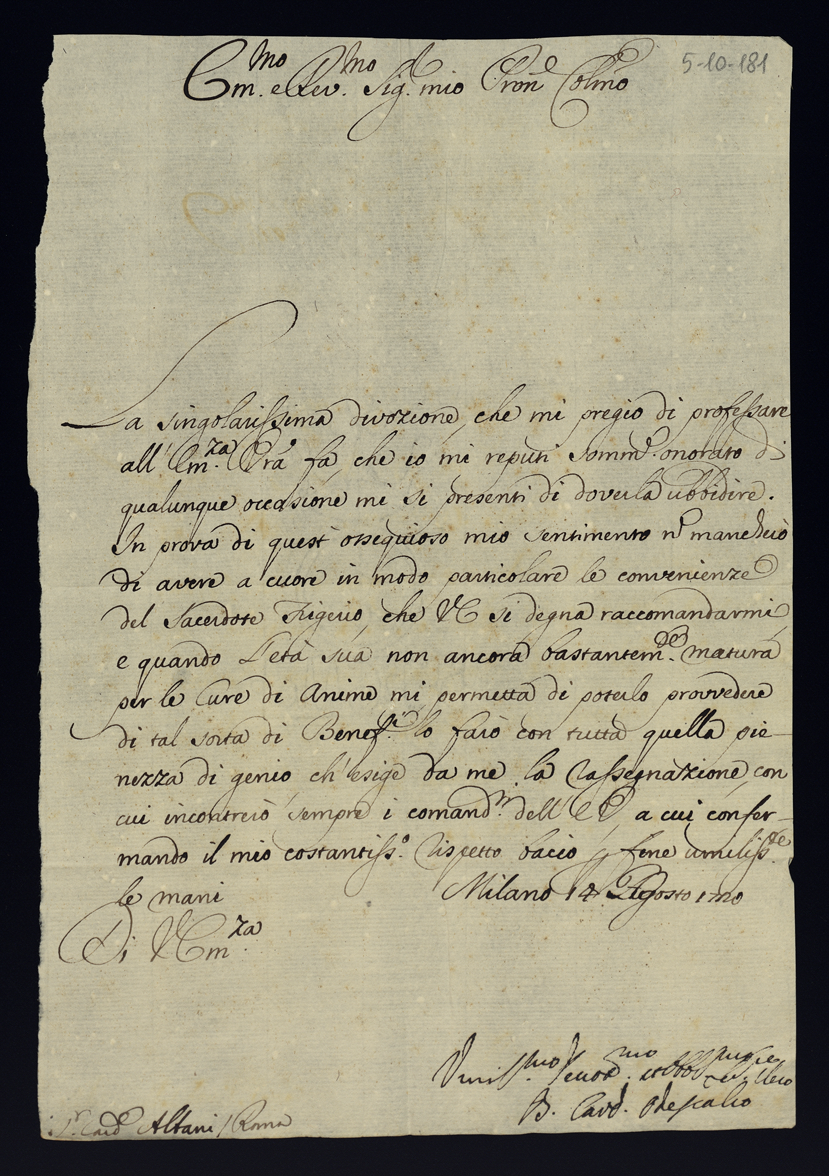 5-10-181
Em.mo e Rev.mo Sig.r mio Pron.e Colmo
La singolarissima divozione, che mi pregio di professare
all' Em.za Vra fa, che io mi reputi somm.e onorato di
qualunque occasione mi si presenti di doverla ubbidire.
In prova di quest' ossequioso mio sentimento nñ mancherò
di avere a cuore in modo particolare le convenienze
del Sacerdote Frigerio, che VE si degna raccomandarmi,
e quando l'età sua non ancora bastantem.te matura
per le Cure di Anime mi permetta di poterlo provvedere
di tal sorta di Benef.i lo farò con tutta quella pie-
nezza di genio, ch' esige da me la rassegnazione, con
cui incontrerò sempre i comand.i dell' EV a cui confer-
mando il mio costantiss.o rispetto bacio p fine umiliss.te
le mani Milano 14 Agosto 1720
Di VEm.za
Umiliss.mo Serv.
B. Card. Odescalco
S.r Card. Albani / Roma